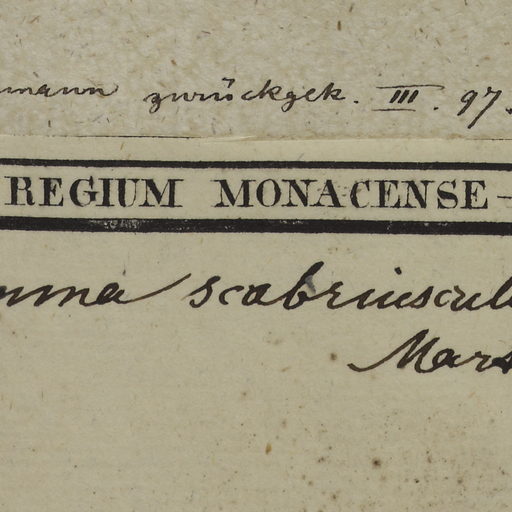 mann zurückgek. III. 97.
REGIUM MONACENSE –
mma scabriuscul
Mart